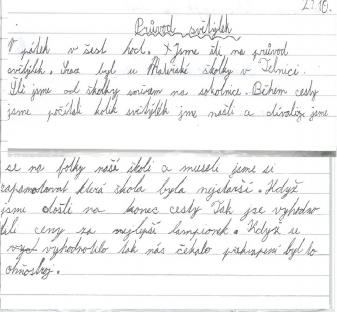 27.10.
Průvod světýlek
V pátek v šest hod. Jsme šli na průvod
světýlek. Sraz byl u Mateřské školky v Telnici.
Šli jsme od školky směrem na sokolnice. Během cesty
jsme počítali kolik světýlek jsme našli a dívali jsme
se na fotky naší školi a museli jsme si
zapamatovat která škola byla nejstarší. Když
jsme došli na konec cesty Tak jse vyhodno
tili ceny za nejlepší lampionek. Když se
vyhodnotilo tak nás čekalo překvapení byl to
ohňostroj.